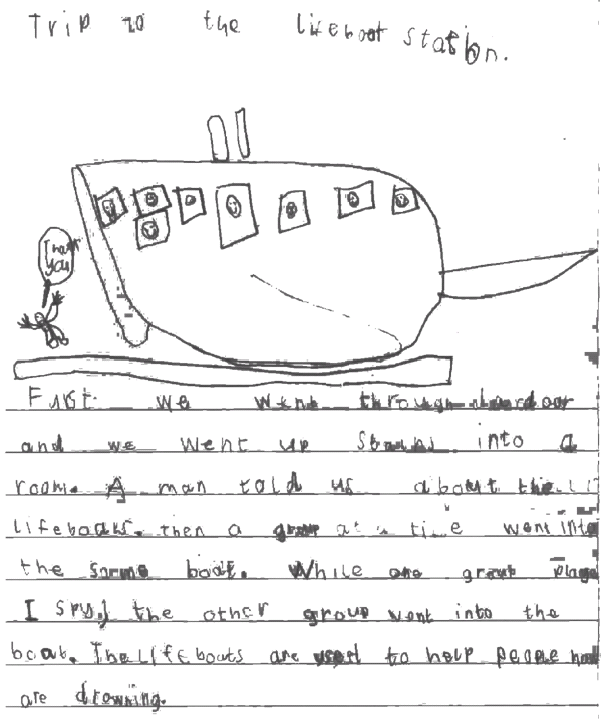 Trip to the lifeboat station.
thank
you
First we went through
and we went up into a
room. A man told us about the
lifeboats. then a group at a time went into
the same boat. While one group
I spy, the other group went into the
boat. The lifeboats are used to help people
are drowning.